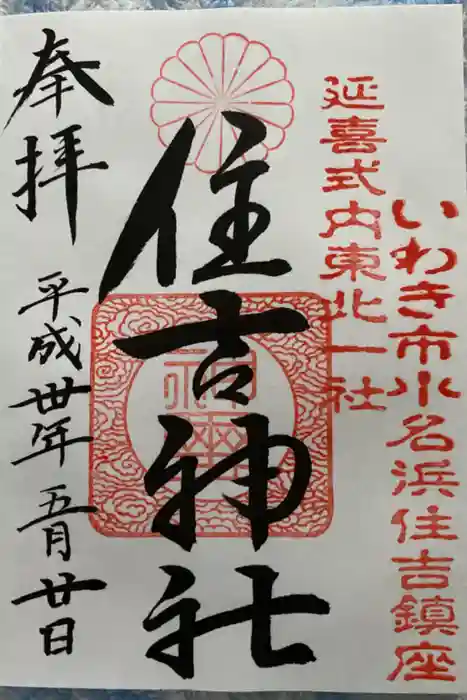 いわき市小名浜住吉鎮座
延喜式内東北一社
奉拝
住吉神社
平成卅年 五月廿日